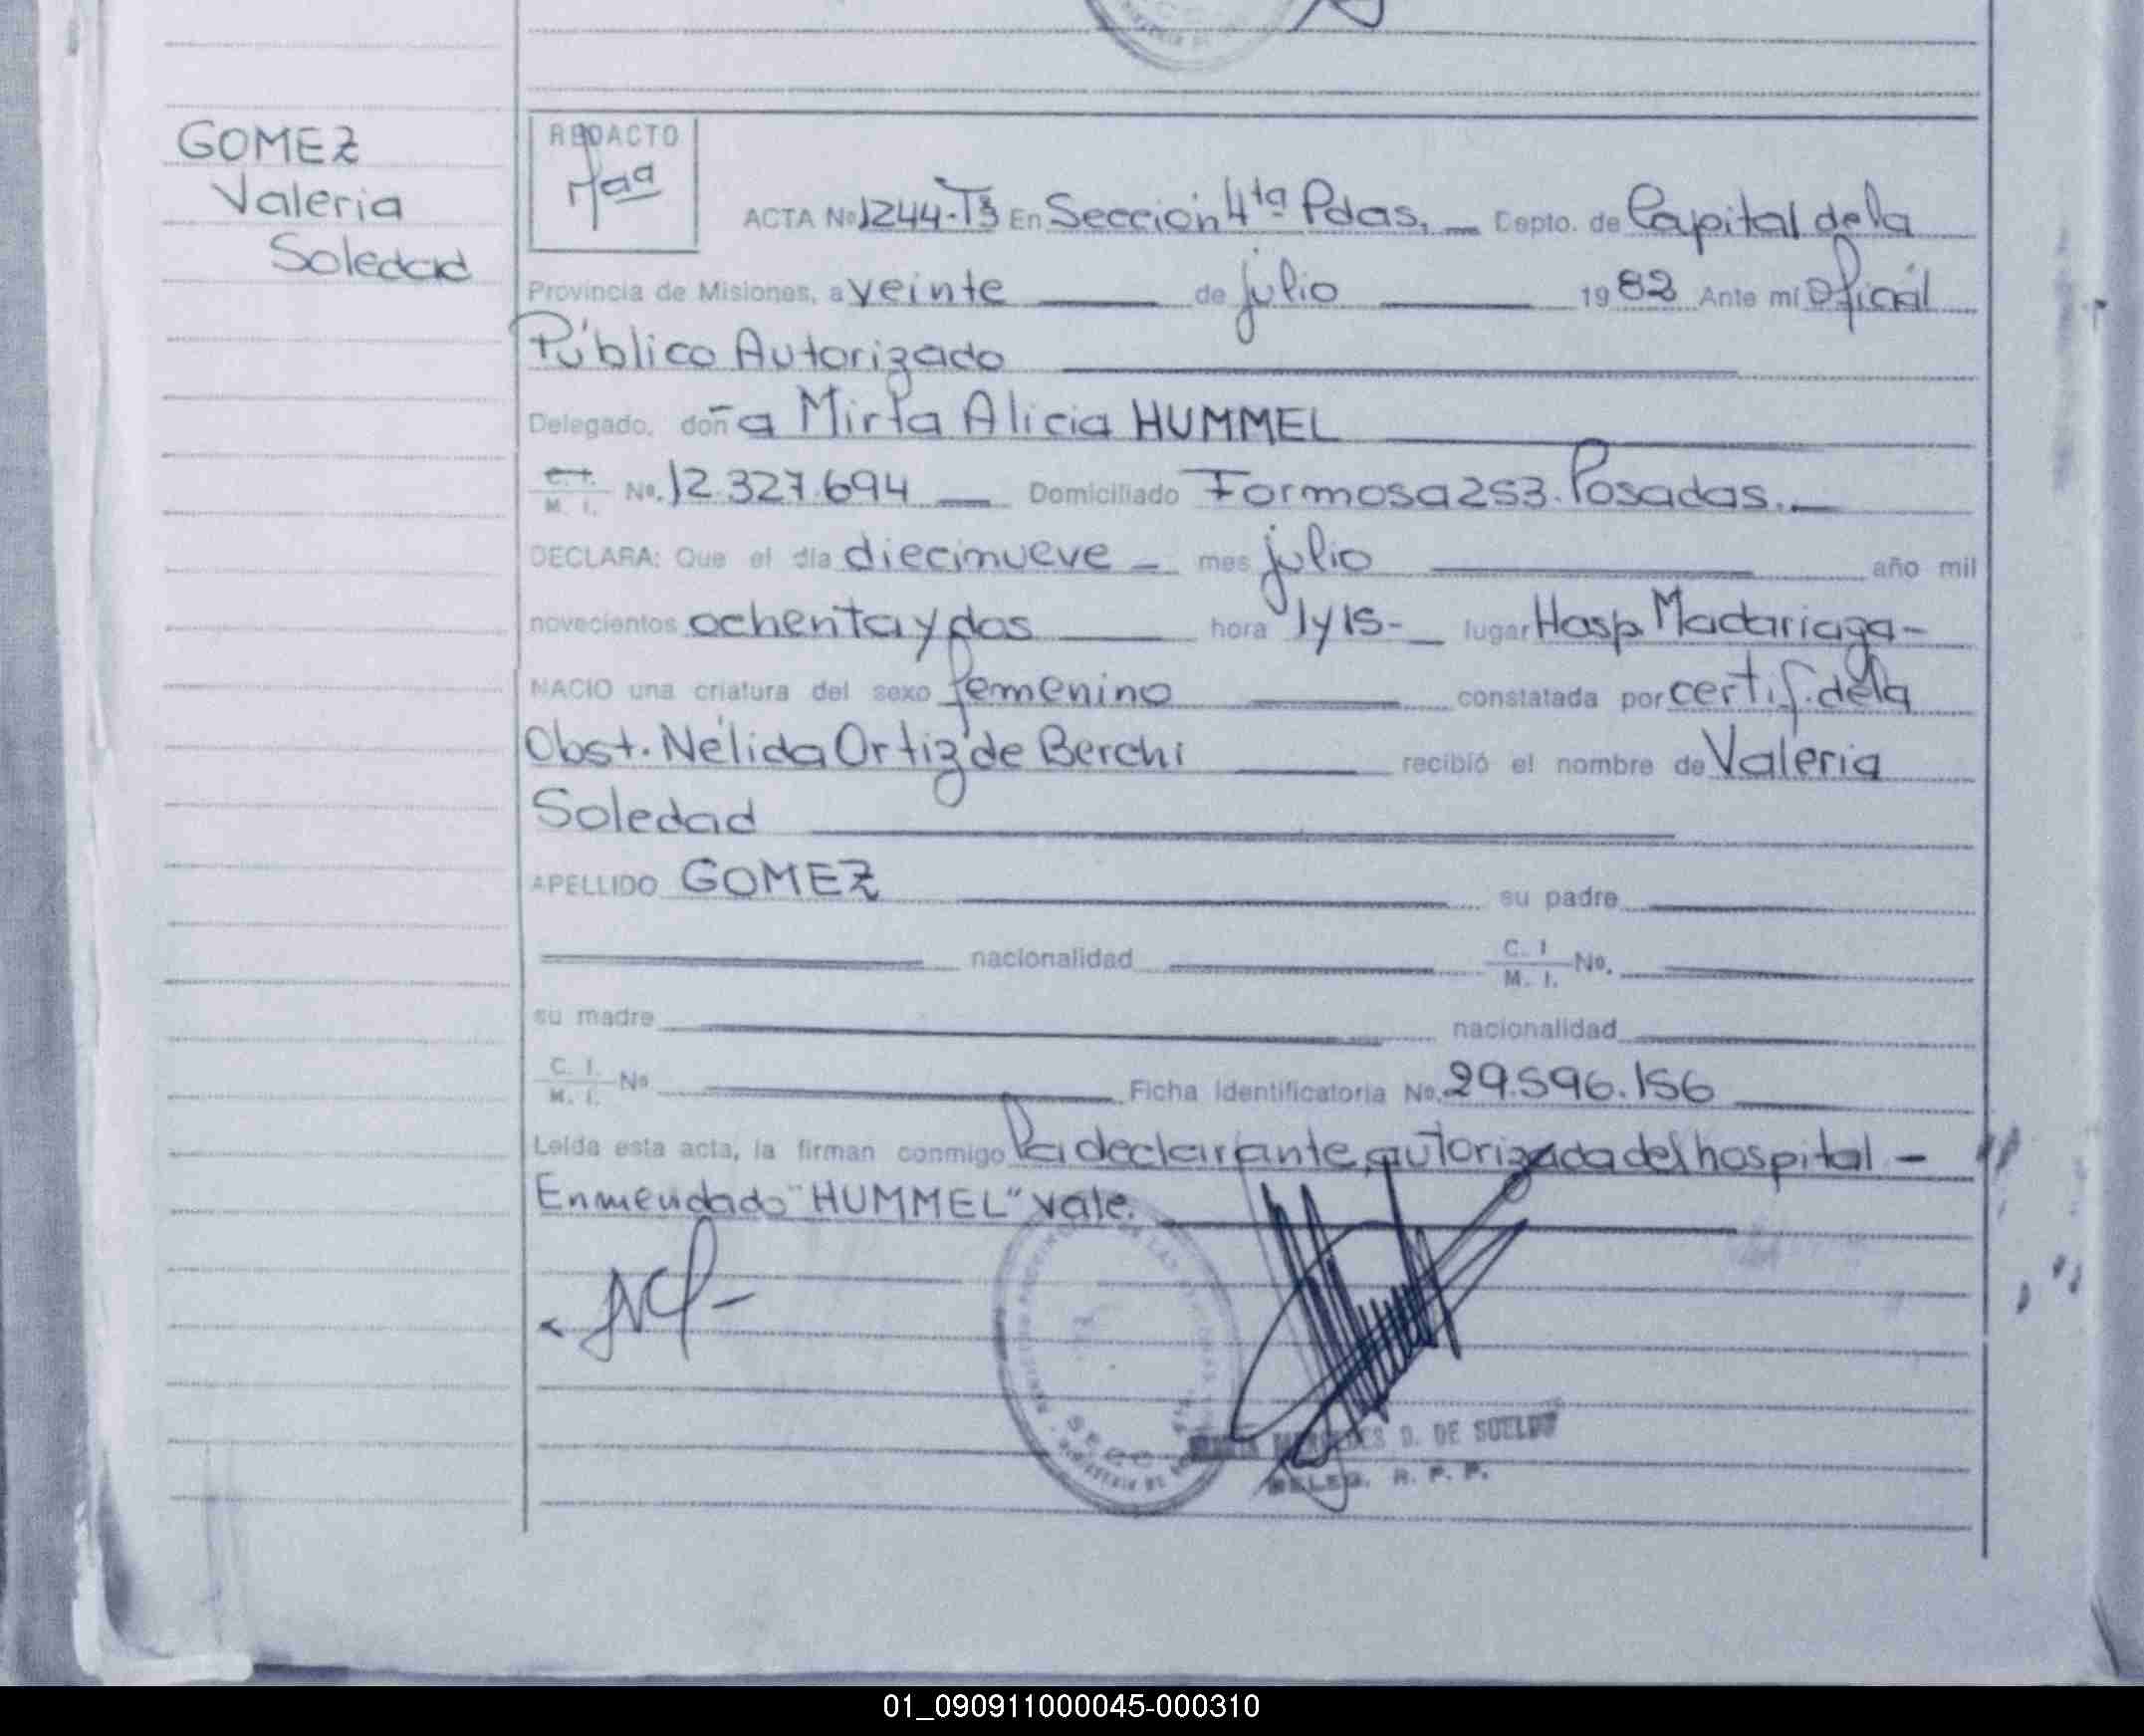 GOMEZ
Valeria
Soledad
REDACTO
ACTA Nº 1244-T3 En Sección 4ta Pdas. Depto. de Capital de la
Provincia de Misiones, a veinte de julio 1982 Ante mi Oficial
Público Autorizado
Delegado, doña Mirta Alicia HUMMEL
C. I. M. I. Nº. 12.327.694 Domiciliado Formosa 253. Posadas.
DECLARA: Que el día diecinueve mes julio año mil
novecientos ochenta y dos hora 1 y 15- lugar Hosp. Madariaga-
NACIO una criatura del sexo femenino constatada por certif. de la
Obst. Nélida Ortiz de Berchi recibió el nombre de Valeria
Soledad
APELLIDO GOMEZ su padre
nacionalidad C. I. M. I. Nº.
su madre nacionalidad
C. I. M. I. Nº Ficha Identificatoria Nº. 29.596.156
Leída esta acta, la firman conmigo la declarante autorizada del hospital -
Enmendado "HUMMEL" vale.
MERCEDES D. DE SUELDO
DELEG. R. P. P.
01_090911000045-000310